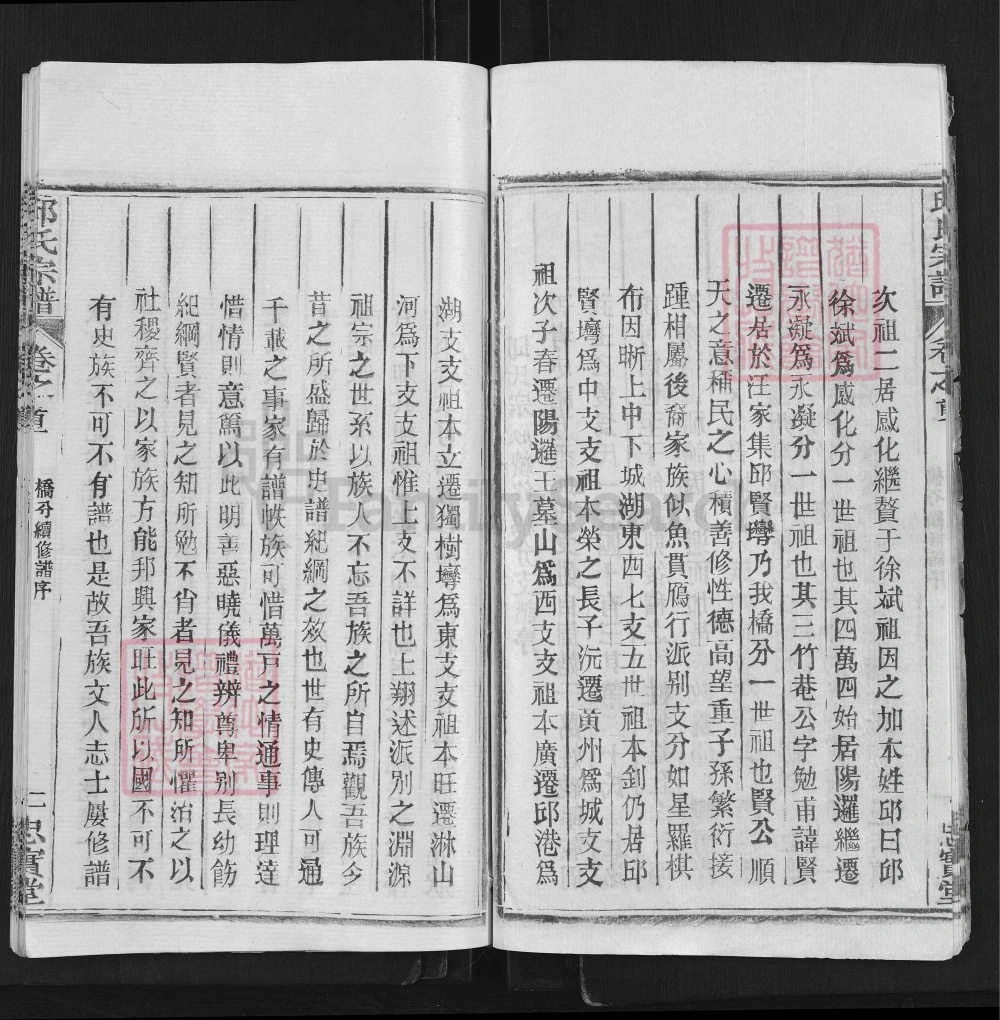 邱氏宗譜
卷之首
忠實堂
次祖二居感化繼贅于徐斌祖因之加本姓邱曰邱
徐斌爲感化分一世祖也其四萬四始居陽邏繼遷
永凝爲永凝分一世祖也其三竹菴公字勉甫諱賢
遷居於汪家集邱賢壪乃我橋分一世祖也賢公順
天之意稱民之心積善修性德高望重子孫繁衍接
踵相屬後裔家族似魚貫鴈行派別支分如星羅棋
布因晰上中下城湖東西七支五世祖本釗仍居邱
賢壪爲中支支祖本榮之長子沅遷黄州爲城支支
祖次子春遷陽邏王墓山爲西支支祖本廣遷邱港爲
湖支支祖本立遷獨樹壪爲東支支祖本旺遷淋山
河爲下支支祖惟上支不詳也上朔述派別之淵源
祖宗之世系以族人不忘吾族之所自焉觀吾族今
昔之所盛歸於史譜紀綱之效也世有史傳人可通
千載之事家有譜帙族可惜萬戸之情通事則理達
惜情則意篤以此明善惡曉儀禮辨尊卑別長幼飭
紀綱賢者見之知所勉不肖者見之知所懼治之以
社稷齊之以家族方能邦興家旺此所以國不可不
有史族不可不有譜也是故吾族文人志士屢修譜
邱氏宗譜
卷之首
橋分續修譜序
二
忠實堂
FamilySearch